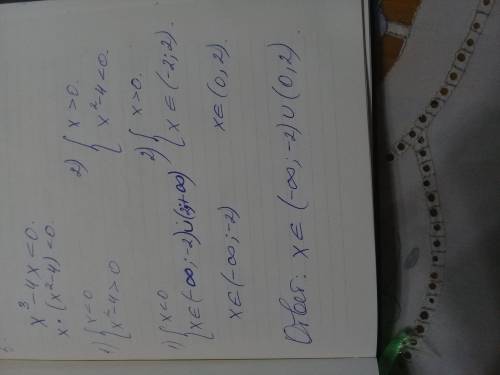 x³-4x<0.
x·(x²-4)<0.
1) { x<0 2) { x>0.
x²-4>0 x²-4<0.
1) { x<0 2) { x>0.
x∈(-∞;-2)∪(2;+∞) x∈(-2;2).
x∈(-∞;-2) x∈(0,2).
Ответ: x∈(-∞;-2)∪(0,2).